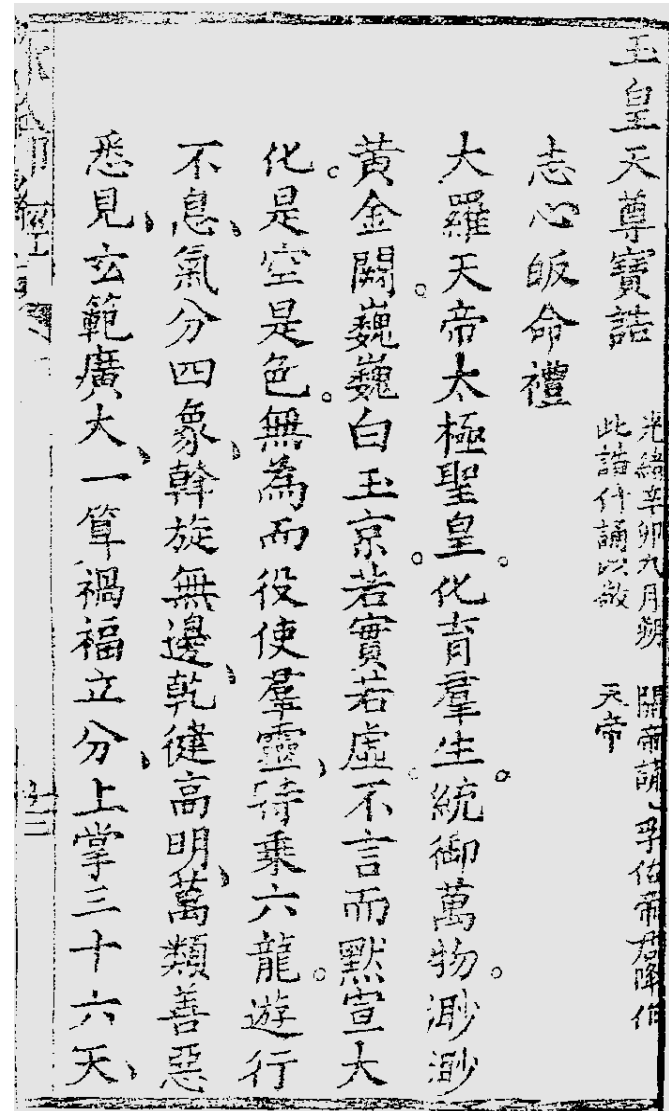 玉皇天尊寶誥
光緒辛卯九月朔 開帝誦、孚佑帝君降作
此誥什誦以敬 天帝
志心皈命禮
大羅天帝太極聖皇。化育羣生。統御萬物。渺渺
黃金闕。巍巍白玉京。若實若虛。不言而默宣大
化。是空是色。無為而役使羣靈、時乘六龍。遊行
不息、氣分四象、幹旋無邊、乾健高明、萬類善惡
悉見、玄範廣大、一筭禍福立分、上掌三十六天、